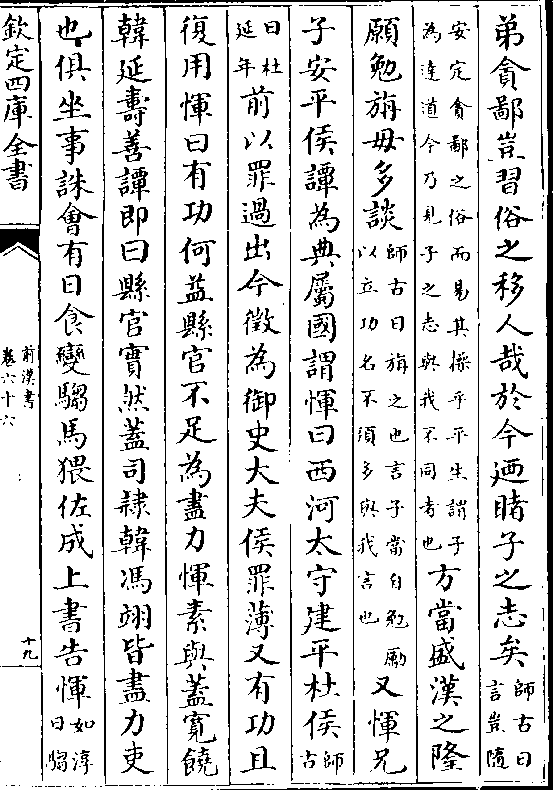 弟貪鄙豈習俗之移人哉於今廼睹子之志矣師古曰言豈隨
安定貪鄙之俗而易其操乎平生謂子為達道今乃見子之志與我不同者也方當盛漢之隆
願勉旃毋多談師古曰旃之也言子當自勉厲以立功名不須多與我言也又惲兄
子安平侯譚為典屬國謂惲曰西河太守建平杜侯師古
曰杜延年前以罪過出今徵為御史大夫侯罪薄又有功且
復用惲曰有功何益縣官不足為盡力惲素與蓋寬饒
韓延壽善譚即曰縣官實然蓋司隷韓馮翊皆盡力吏
也俱坐事誅會有日食變騶馬猥佐成上書告惲如淳曰騶
欽定四庫全書
前漢書
卷六十六
十九